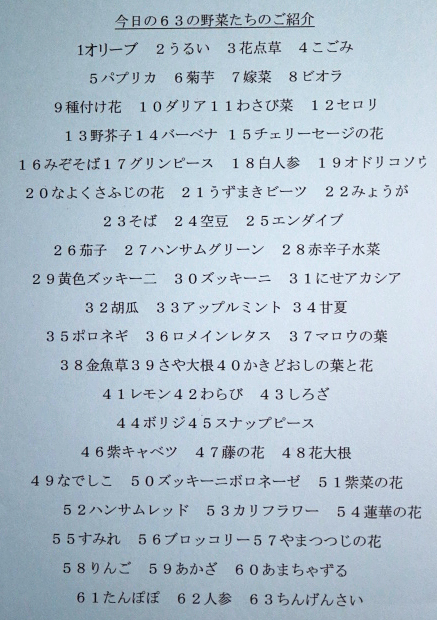 今日の６３の野菜たちのご紹介
1オリーブ　２うるい　３花点草　４こごみ
５パプリカ　６菊芋　７嫁菜　８ビオラ
９種付け花　１０ダリア１１わさび菜　１２セロリ
１３野芥子１４バーベナ　１５チェリーセージの花
１６みぞそば１７グリンピース　１８白人参　１９オドリコソウ
２０なよくさふじの花　２１うずまきビーツ　２２みょうが
２３そば　２４空豆　２５エンダイブ
２６茄子　２７ハンサムグリーン　２８赤辛子水菜
２９黄色ズッキー二　３０ズッキーニ　３１にせアカシア
３２胡瓜　３３アップルミント　３４甘夏
３５ポロネギ　３６ロメインレタス　３７マロウの葉
３８金魚草３９さや大根４０かきどおしの葉と花
４１レモン４２わらび　４３しろざ
４４ボリジ４５スナップピース
４６紫キャベツ　４７藤の花　４８花大根
４９なでしこ　５０ズッキーニボロネーゼ　５１紫菜の花
５２ハンサムレッド　５３カリフラワー　５４蓮華の花
５５すみれ　５６ブロッコリー５７やまつつじの花
５８りんご　５９あかざ　６０あまちゃずる
６１たんぽぽ　６２人参　６３ちんげんさい